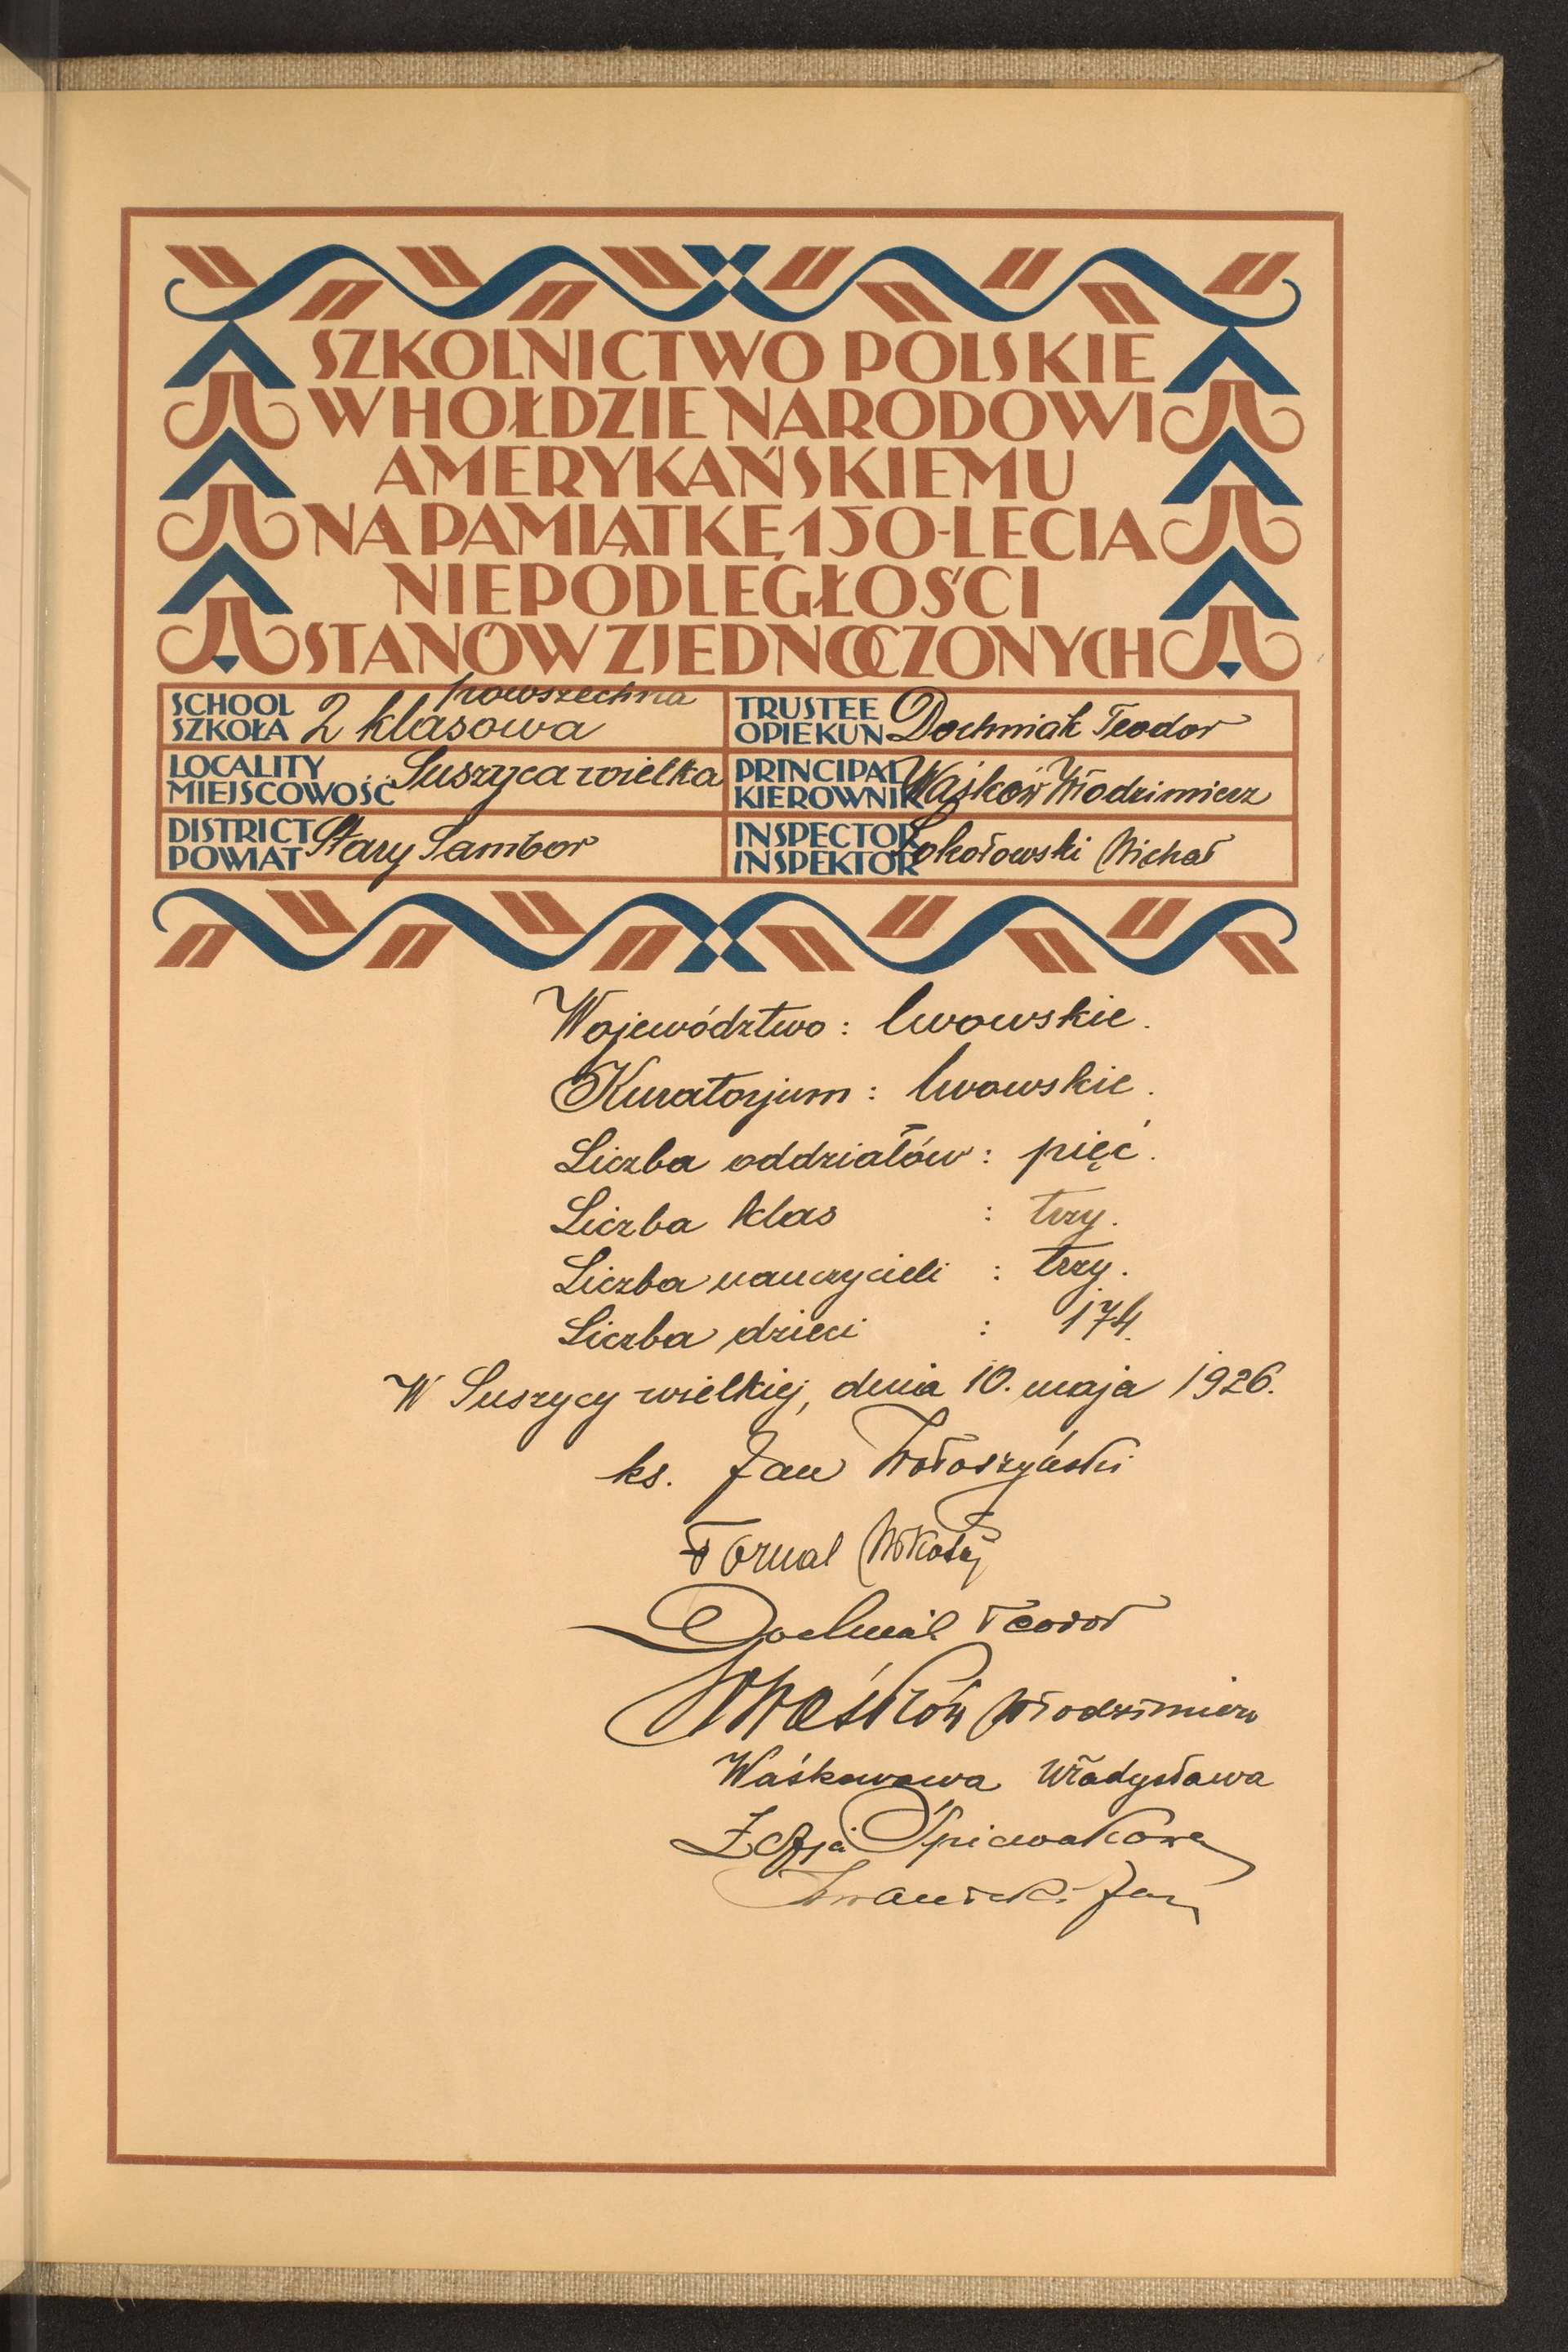 SZKOLNICTWO POLSKIE
W HOŁDZIE NARODOWI
AMERYKAŃSKIEMU
NA PAMIĄTKĘ 150-LECIA
NIEPODLEGŁOŚCI
STANÓW ZJEDNOCZONYCH
SCHOOL
SZKOŁA
powszechna
2 klasowa
TRUSTEE
OPIEKUN
Dochniak Teodor
LOCALITY
MIEJSCOWOŚĆ
Suszyca wielka
PRINCIPAL
KIEROWNIK
Waśków Włodzimierz
DISTRICT
POWIAT
Stary Sambor
INSPECTOR
INSPEKTOR
Sokołowski Michał
Województwo : lwowskie.
Kuratorjum : lwowskie.
Liczba oddziałów : pięć.
Liczba klas : trzy.
Liczba nauczycieli : trzy.
Liczba dzieci : 174.
W Suszycy wielkiej, dnia 10. maja 1926.
ks. Jan Wołoszyński
Fornal Mikołaj
Dochniak Teodor
Waśków Włodzimierz
Waśkowowa Władysława
Zofja Śpiewakowa
Iwanicki Jan